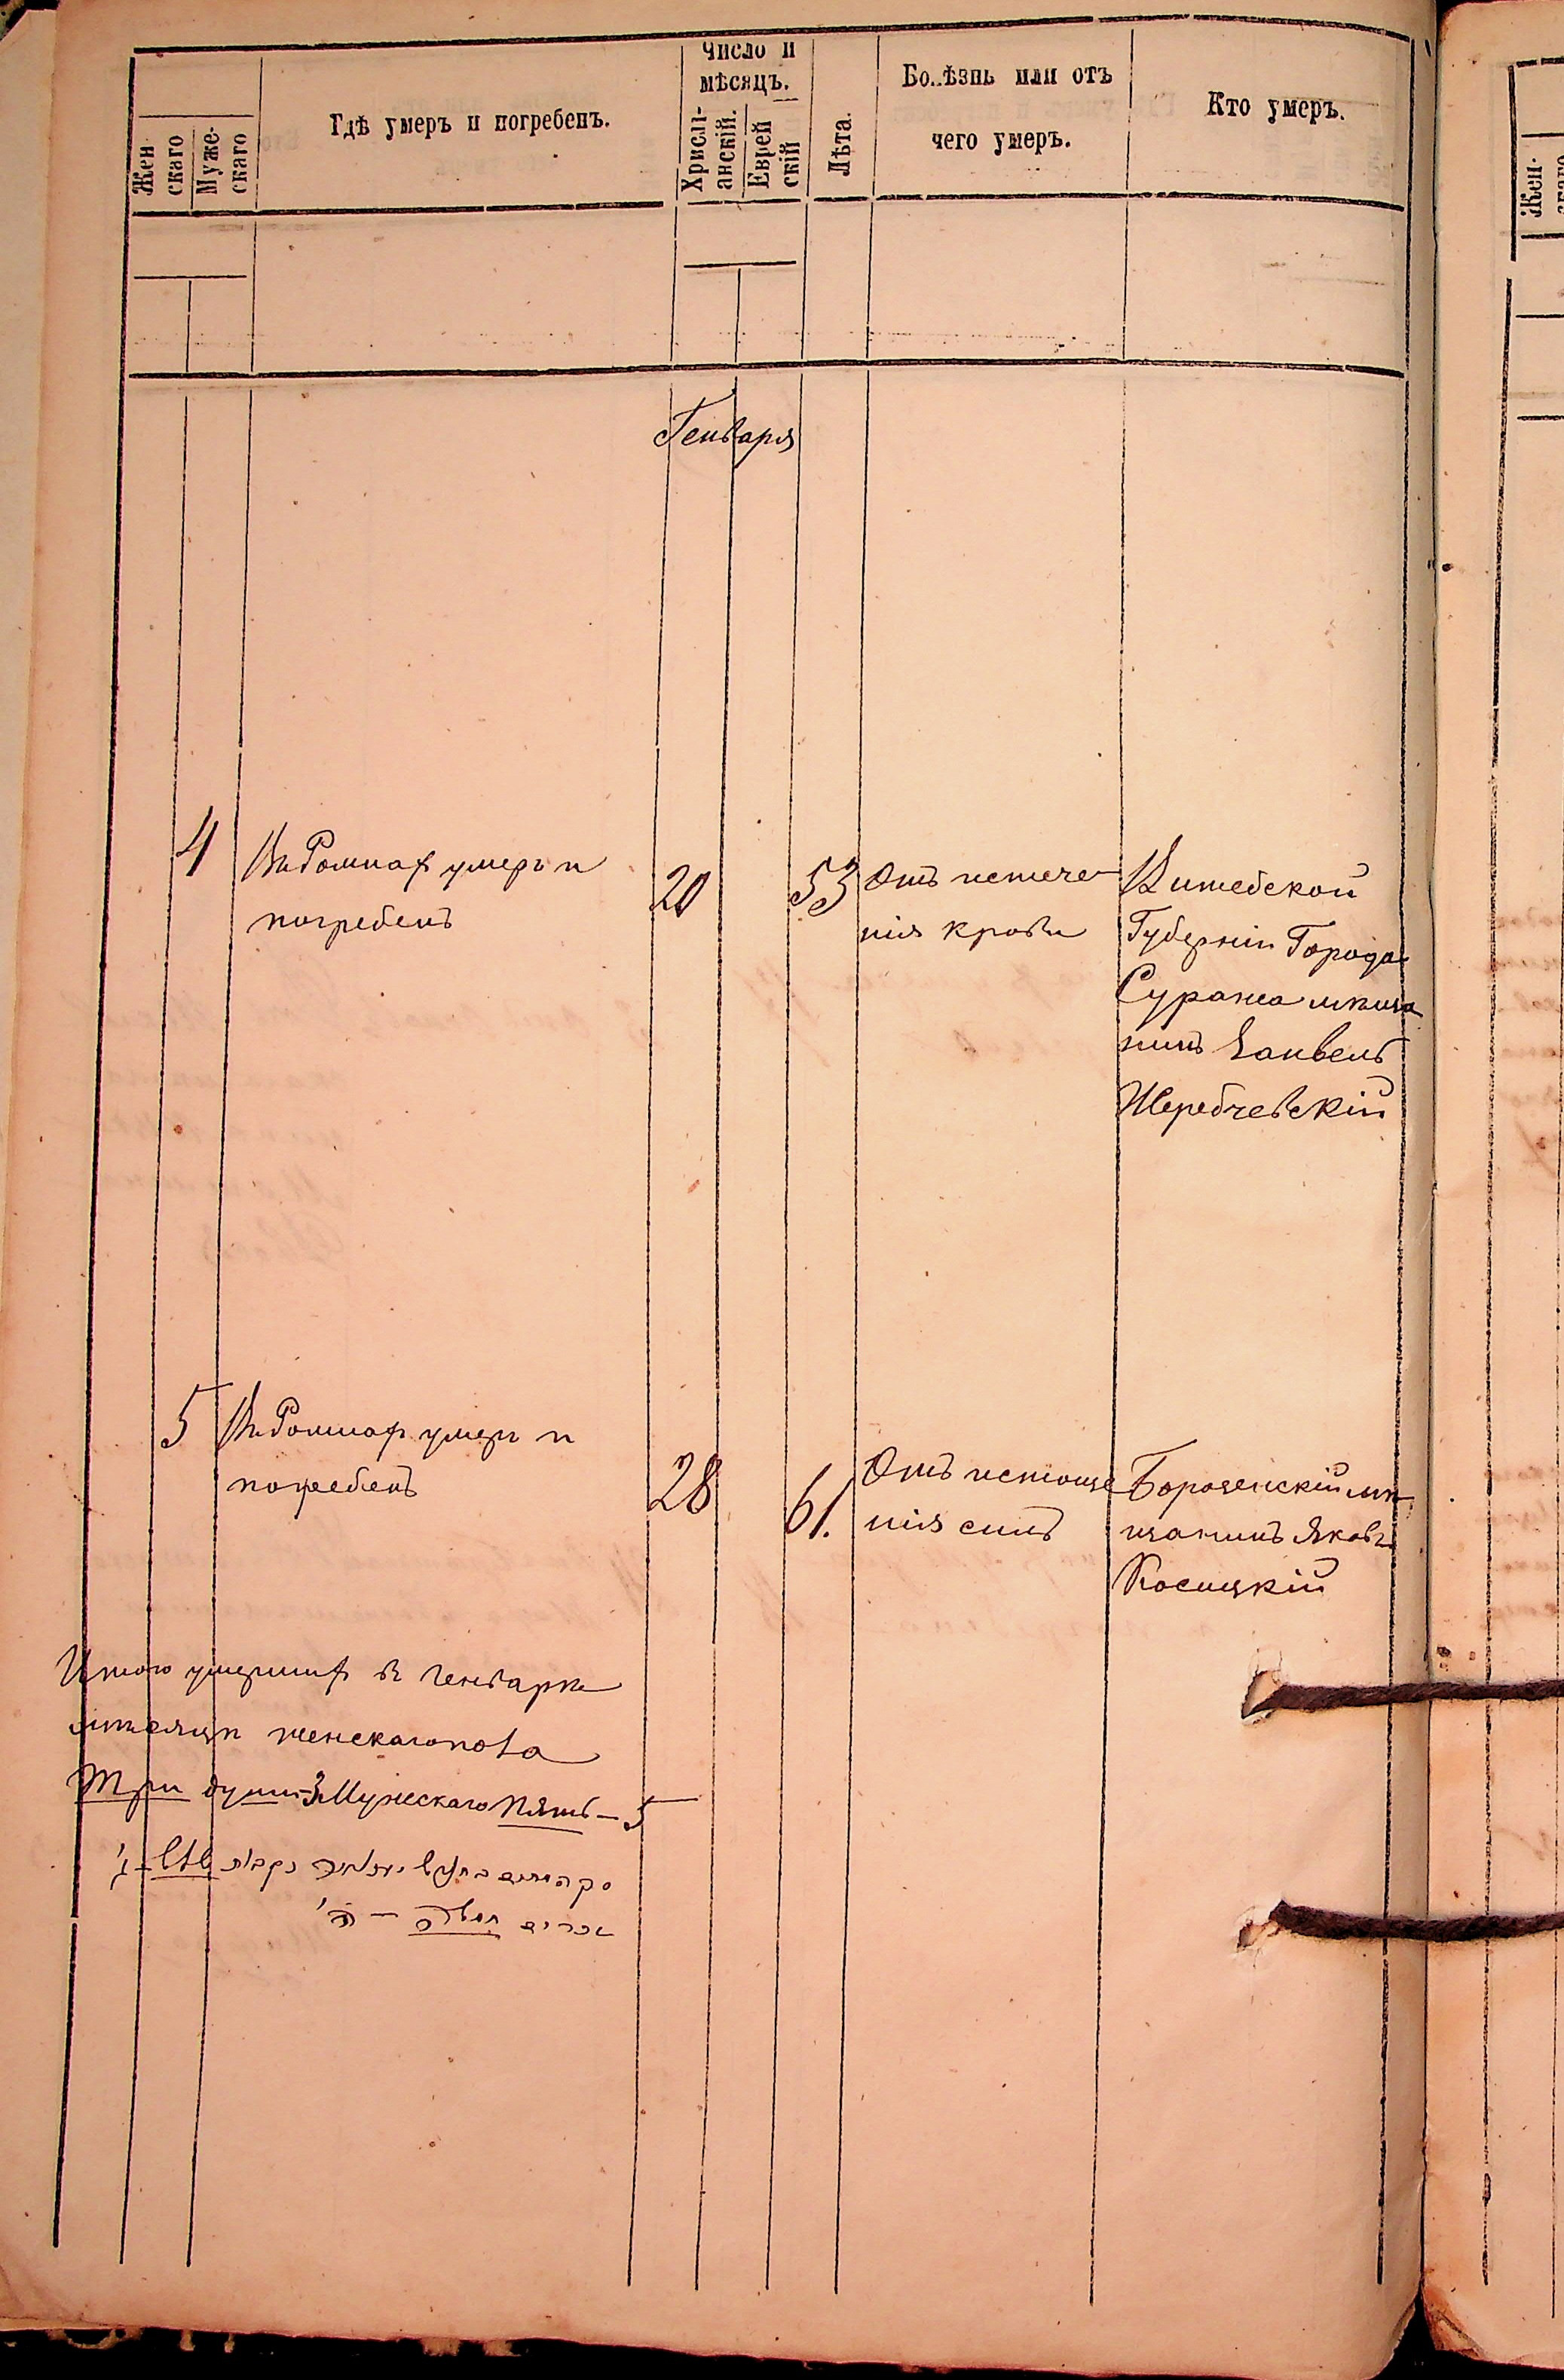 Жен-
скаго
Муже-
скаго
Гдѣ умеръ и погребенъ.
Число и
мѣсяцъ.
Христі-
анскій.
Еврей
скій
Лѣта.
Болѣзнь или отъ
чего умеръ.
Кто умеръ.
Генваря
4
Въ Ромнах умеръ и
погребенъ
20
53
Отъ истече-
нія крови
Витебской
Губерніи Города
Суража мѣща
нинъ
Жеребчевскій
5
Въ Ромнах умеръ и
погребенъ
28
61.
Отъ истоще
нія силъ
Борзенскій мѣ
щанинъ Яковъ
Косицкій
Итого умерших въ Генварѣ
мѣсяцѣ женскаго пола
Три души-3 Мужескаго Пять-5
Жен-